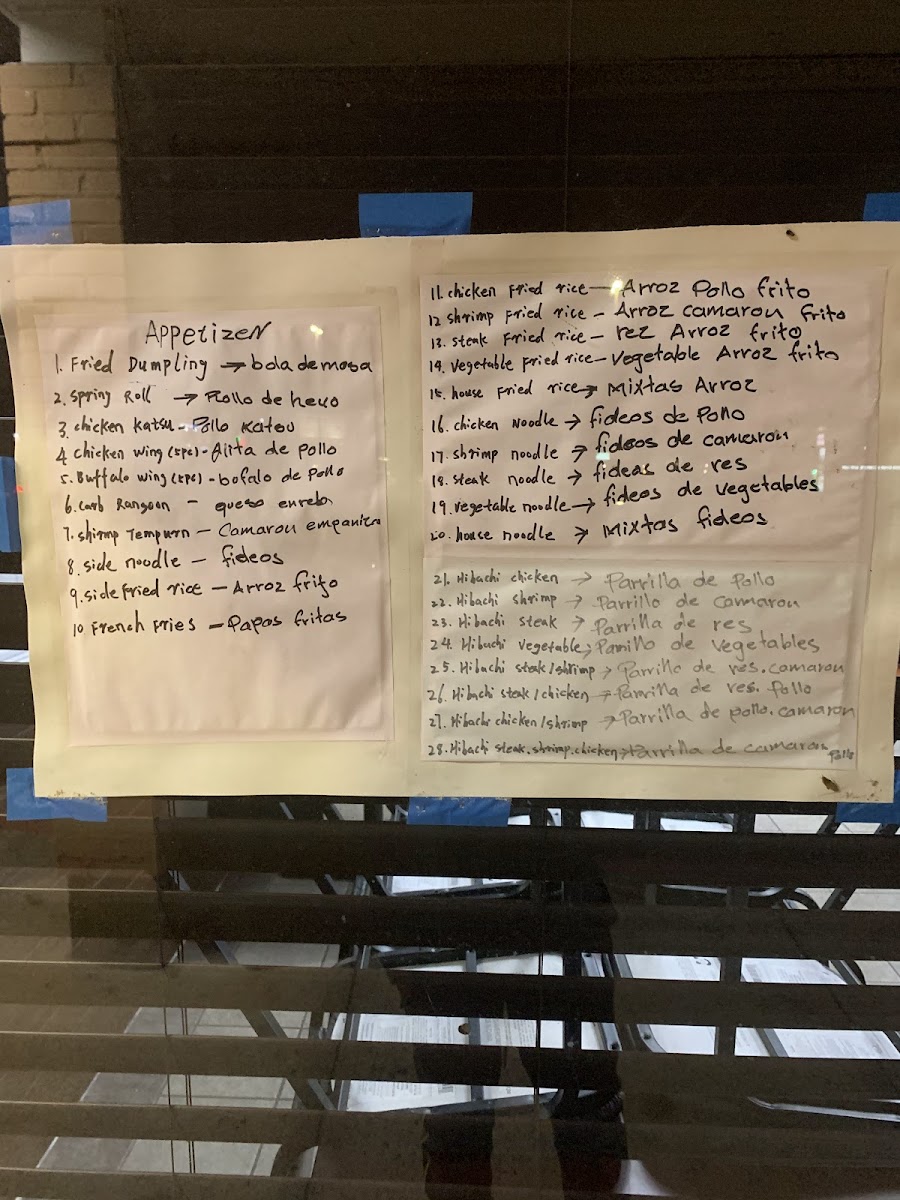 Appetizen
1. Fried Dumpling → bola de masa
2. Spring Roll → Rollo de hevo
3. chicken katsu - Pollo Katsu
4 chicken wing (5pc) - Alita de Pollo
5. Buffalo wing (5pc) - bofalo de pollo
6. Carb Rangoon - queso
7. shrimp Tempurn — Camarou
8. side noodle — fideos
9. side fried rice — Arroz frito
10. French Fries — Papas fritas
11. chicken Fried rice — Arroz Pollo frito
12 shrimp Fried rice - Arroz camarou frito
13. steak Fried rice - rez Arroz frito
14. Vegetable fried rice - Vegetable Arroz frito
15. house fried rice → Mixtas Arroz
16. chicken Noodle → fideos de Pollo
17. shrimp noodle → fideos de camaron
18. steak noodle → fideas de res
19. vegetable noodle → fideos de vegetables
20. house noodle → Mixtas fideos
21. Hibachi chicken → Parrilla de pollo
22. Hibachi shrimp → Parrillo de camaron
23. Hibachi steak → Parrilla de res
24. Hibachi vegetable → Parrillo de vegetables
25. Hibachi steak/shrimp → Parrillo de res. camaron
26. Hibachi steak/chicken → Parrilla de res. Pollo
27. Hibachi chicken/shrimp → Parrilla de pollo. camaron
28. Hibachi steak. shrimp. chicken → Parrilla de camaron
Pollo